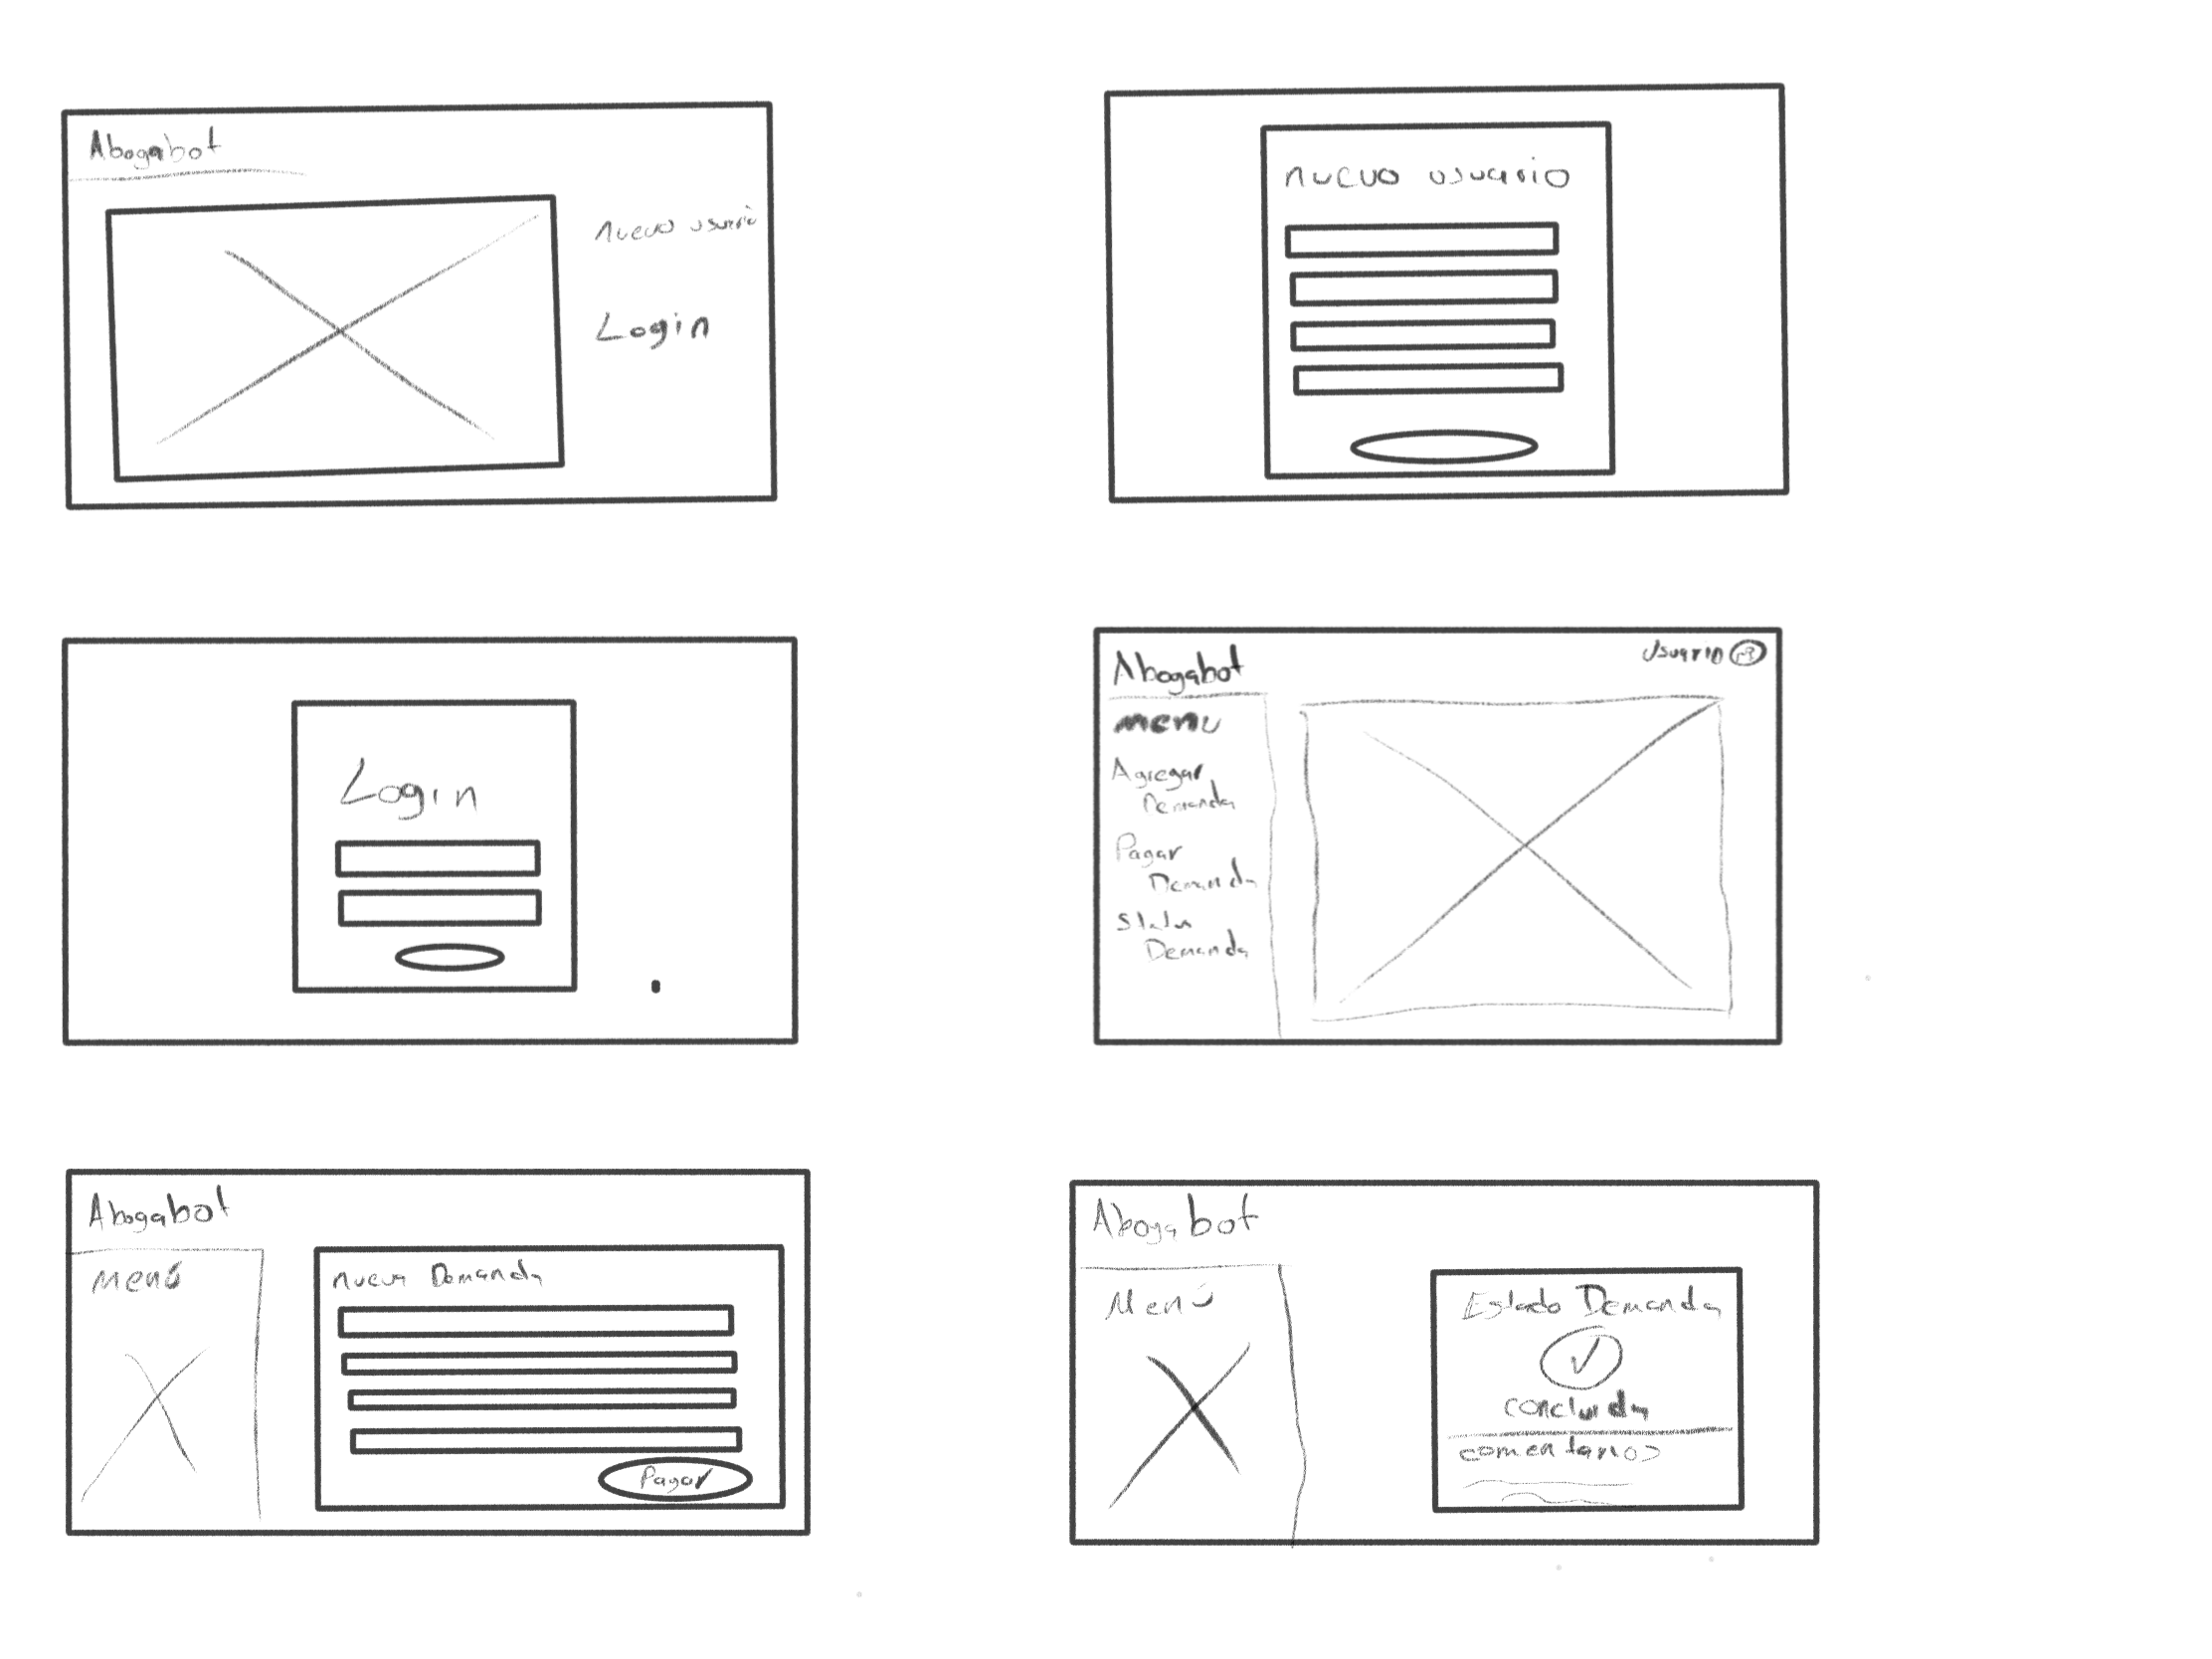 Abogabot
nuevo usuario
Login
nuevo usuario
Login
Abogabot
Usuario
menu
Agregar
Demanda
Pagar
Demanda
Status
Demanda
Abogabot
Menú
nueva Demanda
Pagar
Abogabot
Menú
Estado Demanda
concluida
comentarios